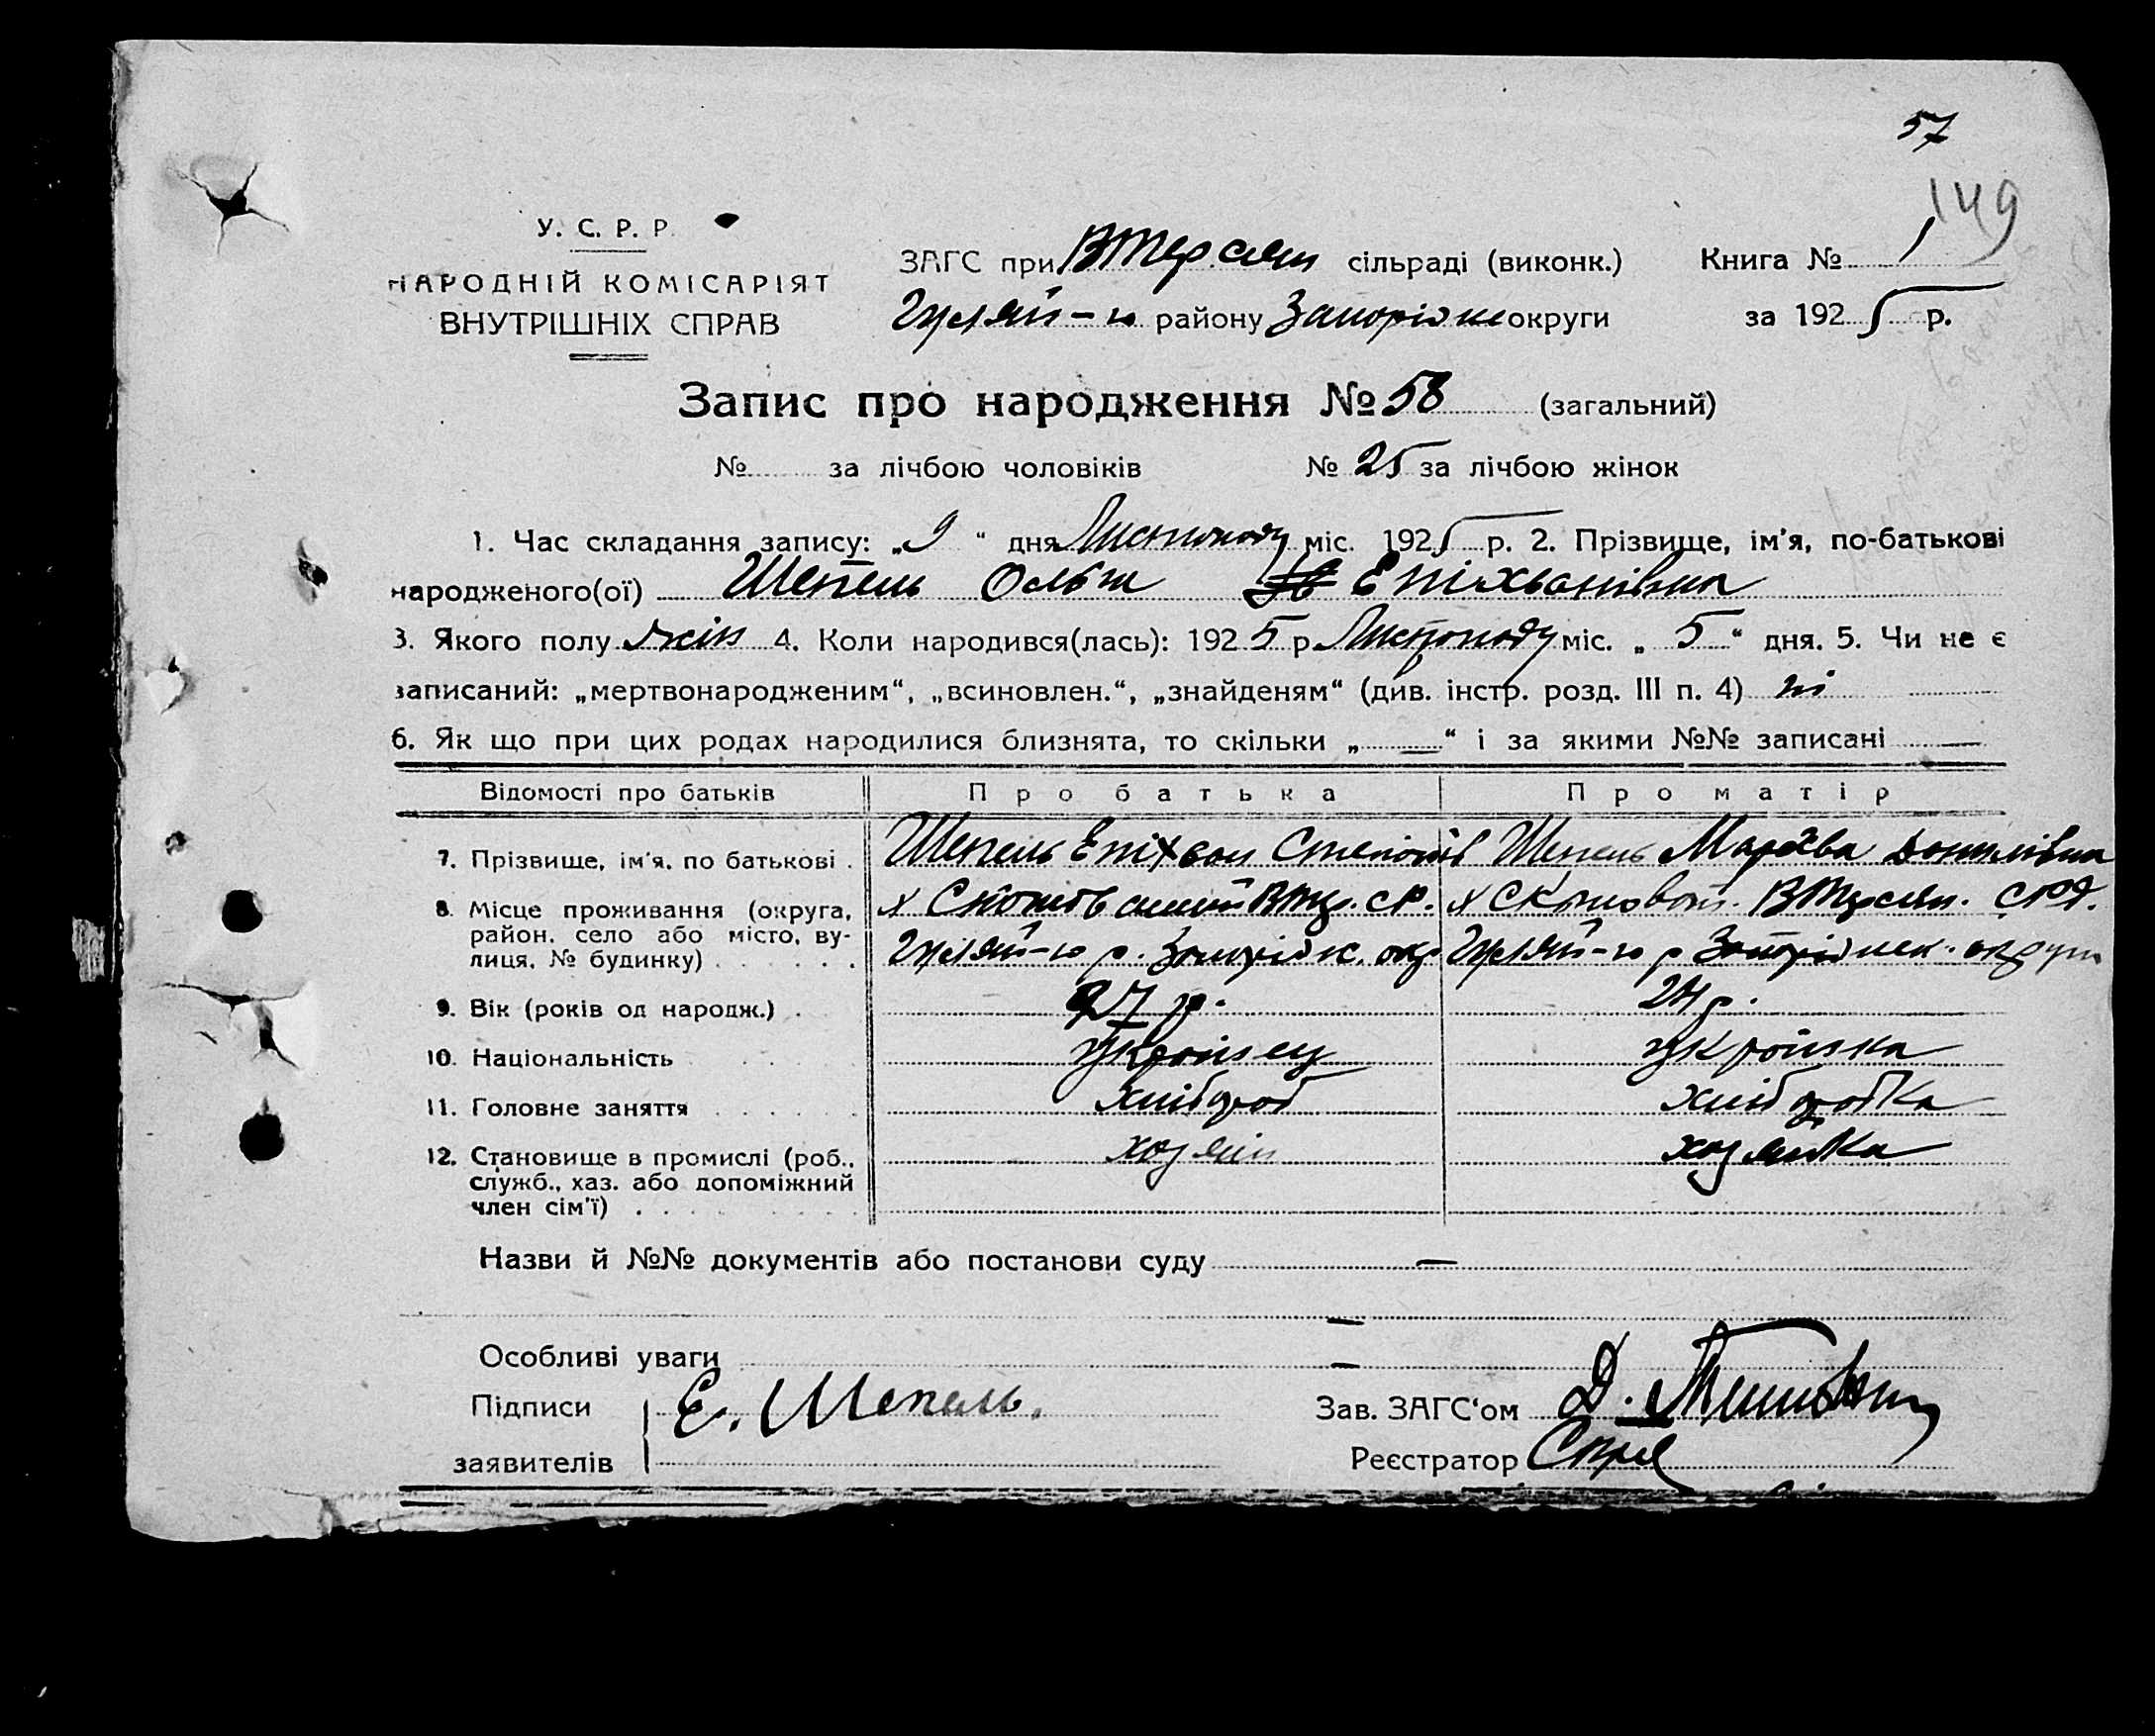 57
149
У. С. Р. Р.
НАРОДНІЙ КОМІСАРІЯТ
ВНУТРІШНІХ СПРАВ
ЗАГС при ВТерсян сільраді (виконк.) Книга № 1
Гуляй-п району Запоріж округи за 1925 р.
Запис про народження № 58 (загальний)
№ за лічбою чоловіків № 25 за лічбою жінок
1. Час складання запису: „9“ дня Листопаду міс. 1925 р. 2. Прізвище, ім'я, по-батькові
народженого(ої) Шепель Ольга Епіхванівна
3. Якого полу жін 4. Коли народився(лась): 1925 р Листопаду міс. „5“ дня. 5. Чи не є
записаний: „мертвонародженим“, „всиновлен.“, „знайденям“ (див. інстр. розд. III п. 4) ні
6. Як що при цих родах народилися близнята, то скільки „—“ і за якими №№ записані —
Відомості про батьків Про батька Про матір
7. Прізвище, ім'я, по батькові . Шепель Епіхван Степанов Шепель Данилівна
8. Місце проживання (округа, х ВТер. ср. х ВТерсян. срд.
район, село або місто, ву- Гуляй-п р. Запоріж. окр Гуляй-п р Запоріжск. округи
лиця, № будинку)
9. Вік (років од народж.) . 27 р. 24 р.
10. Національність украінец украінка
11. Головне заняття хлібороб хліборобка
12. Становище в промислі (роб., хозяін хозяйка
служб., хаз. або допоміжний
член сім'ї)
Назви й №№ документів або постанови суду —
—
Особливі уваги —
Підписи Е. Шепель. Зав. ЗАГС'ом Д.
заявителів Реєстратор